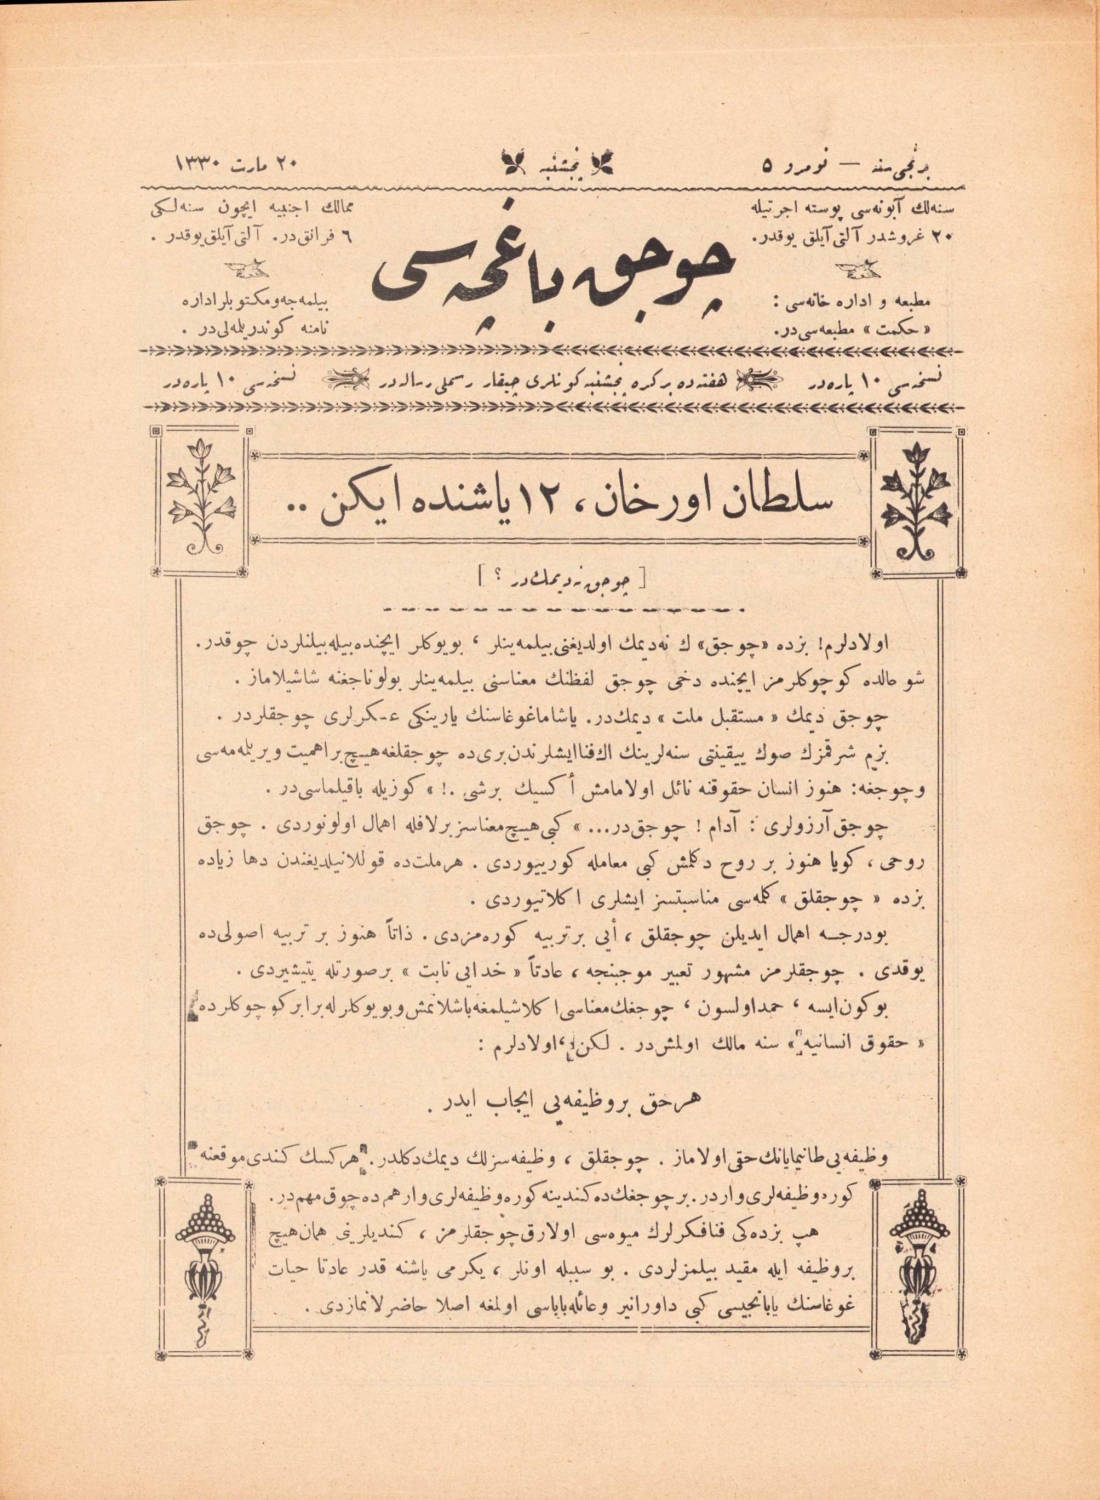 برنجی سنه — نومرو ۵
پنجشنبه
۲۰ مارت ۱۳۳۰
سنه‌لك آبونه‌سی پوسته اجرتیله
۲۰ غروشدر آلتی آیلق یوقدر.
مطبعه و اداره خانه‌سی :
« حکمت » مطبعه‌سی‌در.
چوجق باغچه‌سی
ممالك اجنبیه ایچون سنه‌لکی
۶ فرانق‌در. آلتی آیلق یوقدر .
بیلمه‌جه و مکتوبلر اداره
نامنه کوندریلمه‌لی‌در .
نسخه‌سی ۱۰ پاره‌در
هفته‌ده بر کره پنجشنبه کونلری چیقار رسملی رساله‌در
نسخه‌سی ۱۰ پاره‌در
سلطان اورخان ، ۱۲ یاشنده ایکن ..
[ چوجق نه دیمك‌در ؟ ]
اولادلرم! بزده «چوجق» ك نه‌دیمك اولدیغنی بیلمه‌ینلر ، بویوکلر ایچنده بیله بیلنلردن چوقدر.
شو حالده کوچوکلرمز ایچنده دخی چوجق لفظنك معناسنی بیلمه‌ینلر بولوناجغنه شاشیلاماز .
چوجق دیمك « مستقبل ملت » دیمك‌در. یاشاما غوغاسنك یارینکی عسکرلری چوجقلردر .
بزم شرقمزك صوك ییقینتی سنه‌لرینك اك فنا ایشلرندن بری‌ده چوجقلغه هیچ بر اهمیت ویریلمه‌مه‌سی
وچوجغه: هنوز انسان حقوقنه نائل اولامامش أکسیك برشی .! » کوزیله باقیلماسی‌در .
چوجق آرزولری : آدام ! چوجق‌در... » کبی هیچ معناسز بر لافله اهمال اولونوردی . چوجق
روحی ، کویا هنوز بر روح دکلمش کبی معامله کورییوردی . هر ملت‌ده قوللانیلدیغندن دها زیاده
بزده « چوجقلق » کلمه‌سی مناسبتسز ایشلری اکلاتیوردی .
بودرجـه اهمال ایدیلن چوجقلق ، أیی بر تربیه کوره‌مزدی . ذاتاً هنوز بر تربیه اصولی‌ده
یوقدی . چوجقلرمز مشهور تعبیر موجبنجه ، عادتاً « خدایی نابت » برصورتله یتیشیردی .
بوکون ایسه ، حمد اولسون ، چوجغك معناسی اکلاشیلمغه باشلانمش و بویوکلر له برابر کوچوکلرده
« حقوق انسانیه » سنه مالك اولمش‌در . لکن ، اولادلرم :
هر حق بر وظیفه‌یی ایجاب ایدر .
وظیفه‌یی طانیمایانك حقی اولاماز . چوجقلق ، وظیفه‌سزلك دیمك دکلدر. هرکسك کندی موقعنه
کوره وظیفه‌لری واردر. بر چوجغك ده کندینه کوره وظیفه‌لری وار هم ده چوق مهم‌در.
هپ بزده‌کی فنا فکرلرك میوه‌سی اولارق چوجقلرمز ، کندیلرینی همان هیچ
بر وظیفه ایله مقید بیلمزلردی . بو سببله اونلر ، یکرمی یاشنه قدر عادتا حیات
غوغاسنك یابانجیسی کبی داورانیر وعائله باباسی اولمغه اصلا حاضرلانمازدی .